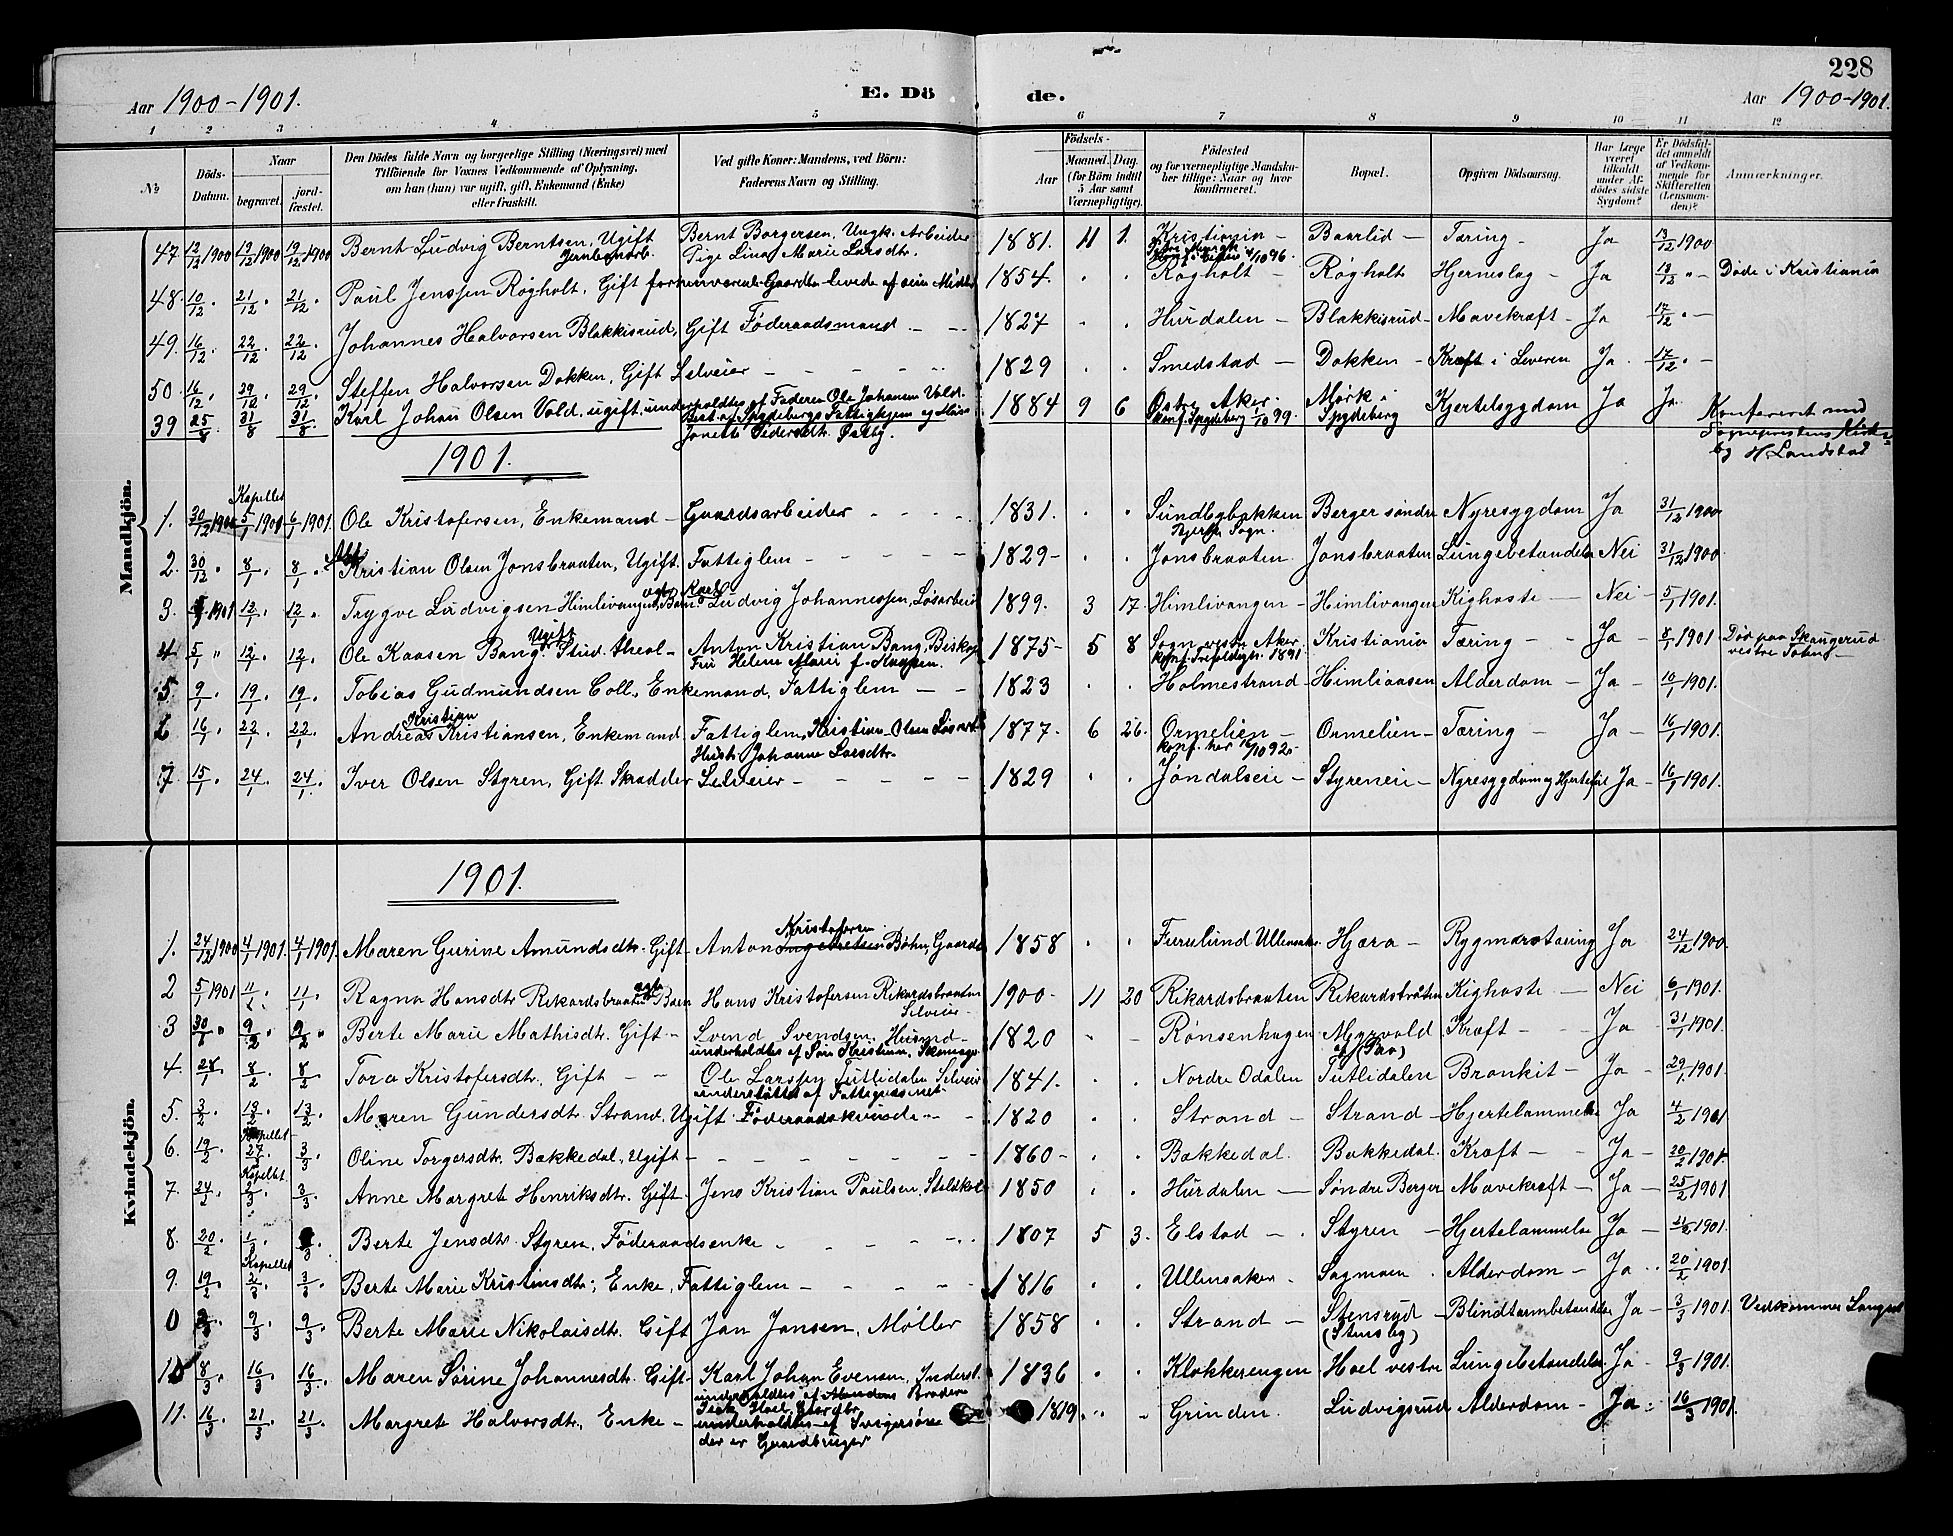 228
Aar 1900-1901.
E. Dö de.
Aar 1900-1901.
1 2 3 4 5 6 7 8 9 10 11 12
№
Döds-Datum.
Naar
begravet.
jord-fæstet.
Den Dödes fulde Navn og borgerlige Stilling (Næringsvei) med
Tilföiende for Voxnes Vedkommende af Oplysning,
om han (hun) var ugift, gift, Enkemand (Enke)
eller fraskilt.
Ved gifte Koner: Mandens, ved Börn:
Faderens Navn og Stilling.
Födsels-
Aar
Maaned. Dag.
(for Börn indtil
5 Aar samt
Værnepligtige).
Födested
og for værnepligtige Mandska-
ber tillige: Naar og hvor
konfirmeret.
Bopæl.
Opgiven Dödsaarsag.
Har Læge
været
tilkaldt
under Af-
dödes sidste
Sygdom?
Er Dödsfal-
det anmeldt
af Vedkom-
mende for
Skifteretten
(Lensman-
den)?
Anmærkninger.
Mandkjön.
47 12/12 1900 19/12 1900 19/12 1900 Bernt Ludvig Berntsen, Ugift Bernt Borgersen, Ungk. Arbeider 1881. 11 1. Kristiania - Baarlid - Tæring - Ja 13/12 1900
Jernbanearb. Pige Lina Marie Larsdtr.
48. 10/12 . 21/12 . 21/12 . Paul Jenssen Rogholt, Gift forhenværende Gaardbr. levede af sine Midler 1854. . . Rogholt - Rogholt Hjerneslag - Ja Døde i Kristiania
49. 16/12 . 22/12 . 22/12 . Johannes Halvorsen Blakkisrud, Gift Föderaadsmand - - 1827 . . Hurdalen - Blakkisrud - Mavekræft - Ja 17/12 . -
50. 16/12 . 29/12 . 29/12 . Steffen Halvorsen Dokken, Gift Selveier - - - - 1829 . . Smedstad - Dokken - Kræft i Leveren Ja . 17/12 . -
39 25/8 31/8 31/8 Karl Johan Olsen Vold, ugift, underholdtes af Faderen Ole Johansen Vold. 1884 9 6 Østre Aker. Mörk i Kjertelsygdom Ja Ja. Konfereret med
Konf. Spydeberg 1/10 99. Spydeberg
Jonette Pedersdtr. Østby.
Sogneprestens Kirke-
bog H. Landstad
1901.
Kapellet
1. 30/12 1900 5/1 1901 6/1 1901. Ole Kristofersen, Enkemand - Gaardsarbeider - - - - 1831. . . Sundbybakken Berger søndre Nyresygdom Ja 31/12 1900
Sogn.
2. 30/12 . 8/1 . 8/1 . Kristian Olsen Jonsbraaten, Ugift. Fattiglem - - - - - 1829 - . . Jonsbraaten. Jonsbraaten Lungebetændelse Nei 31/12 1900
3. 1901 12/1 . 12/1 . Trygve Ludvigsen Himlivangen, Barn Ludvig Johannessen, Løsarbeid 1899. 3 17. Himlivangen - Himlivangen Kighoste - Nei - 5/1 1901.
Karl
4 5/1 " 12/1 . 12/1 . Ole Kaasen Bang. Ugift Stud. theol - Anton Kristian Bang, Biskop 1875 - 5 8 Sogn vestre Aker. Kristiania Tæring - - Ja - 8/1 1901 Død paa Skaugerud
Fru Helene Marie f. konf. Trefoldigh. 1891 vestre Toten -
5. 9/1 . 19/1 . 19/1 . Tobias Gudmundsen Coll, Enkemand, Fattiglem - - 1823 . . Holmestrand - Himliaasen Alderdom - Ja - 10/1 1901.
6 16/1 . 22/1 . 22/1 . Andreas Kristian Kristiansen, Enkemand Fattiglem, Kristian Olsen Løsarb 1877. 6 26. Ormelien - Ormelien - Tæring - Ja - 16/1 1901.
Hustr. Johanne Larsdtr. konf. her 16/10 92.
7. 15/1 . 24/1 . 24/1 . Iver Olsen Styren, Gift Skrædder Selveier - - - - 1829 . . Jøndalseie - Styreneie - Nyresygdom og Hjertefeil Ja - 16/1 1901.
Kvindekjön.
1901.
1. 24/12 1900 4/1 1901. 4/1 1901. Maren Gurine Amundsdtr. Gift - Anton Kristofersen Ingebretsen Böhn, Gaardb 1858 . . Furulund Ullensaker. Hjæra - Rygmarvstæring Ja 24/12 1900.
2 5/1 1901 11/1 . 11/1 . Ragna Hansdtr Rikardsbraaten ægte Barn Hans Kristofersen Rikardsbraaten 1900 - 11 20 Rikardsbraaten Rikardsbråten Kighoste - Nei 6/1 1901.
Selveier -
3 30/1 " 9/2 . 9/2 " Berte Marie Mathisdtr. Gift - Svend Svendsen, Husmd - 1820 - - Rønsenhagen Myrvold Kræft - - Ja - 31/1 1901.
underholdtes af Søn Kristian,
4. 28/1 . 8/2 . 8/2 . Tora Kristofersdtr. Gift - - Ole Larssen Tutlidalen Selveier 1841. . . Nordre Odalen Tutlidalen Bronkit - Ja - 29/1 1901.
understöttet af Fattigvæsnet
5. 3/2 . 12/2 . 12/2 . Maren Gundersdtr. Strand, Ugift Föderaadskvinde - - - 1820 . . Strand - Strand - Hjertelammelse Ja 4/2 1901
Kapellet
6. 19/2 . 27/2 . 3/3 . Oline Torgersdtr. Bækkedal, Ugift - - - - - 1860 - . . Bækkedal. Bækkedal. Kræft - - Ja - 20/2 1901.
Kapellet
7. 24/2 . 2/3 . 3/3 . Anne Margret Henriksdtr. Gift - Jens Kristian Paulsen, 1850 . . Hurdalen - Søndre Berger Mavekræft - Ja - 25/2 1901
8. 20/2 . 1/3 . . Berte Jensdtr. Styren, Föderaadsenke - - - - 1807 5 3. Elstad - . Styren - Hjertelammelse Ja - 1901.
Kapellet
9. 19/2 . 2/3 . 3/3 . Berte Marie Kristensdtr; Enke, Fattiglem - - - - 1816 . . Ullensaker - Sagmoen . Alderdom - Ja . 20/2 1901.
9/3 . 9/3 . Berte Marie Nikolaisdtr. Gift Jan Jansen, Møller 1858 . . Strand - Stensrud - Blindtarmbetændelse Ja - 3/3 1901. Vedkommer Langset
(Stensby)
10 8/3 . 16/3 . 16/3 . Maren Sørine Johannesdtr. Gift - Karl Johan Evensen, Inderst. 1836 . . Klokkerengen - Hoel vestre Lungebetændelse Ja - 9/3 1901.
underholdtes af Mandens Broder
11. 16/3 . 21/3 . 21/3 . Margrete Halvorsdtr, Enke - underholdtes af Svigersönn 1819 . . Grinden. Ludvigsrud Alderdom - Ja - 16/3 1901.
der er Gaardbruger